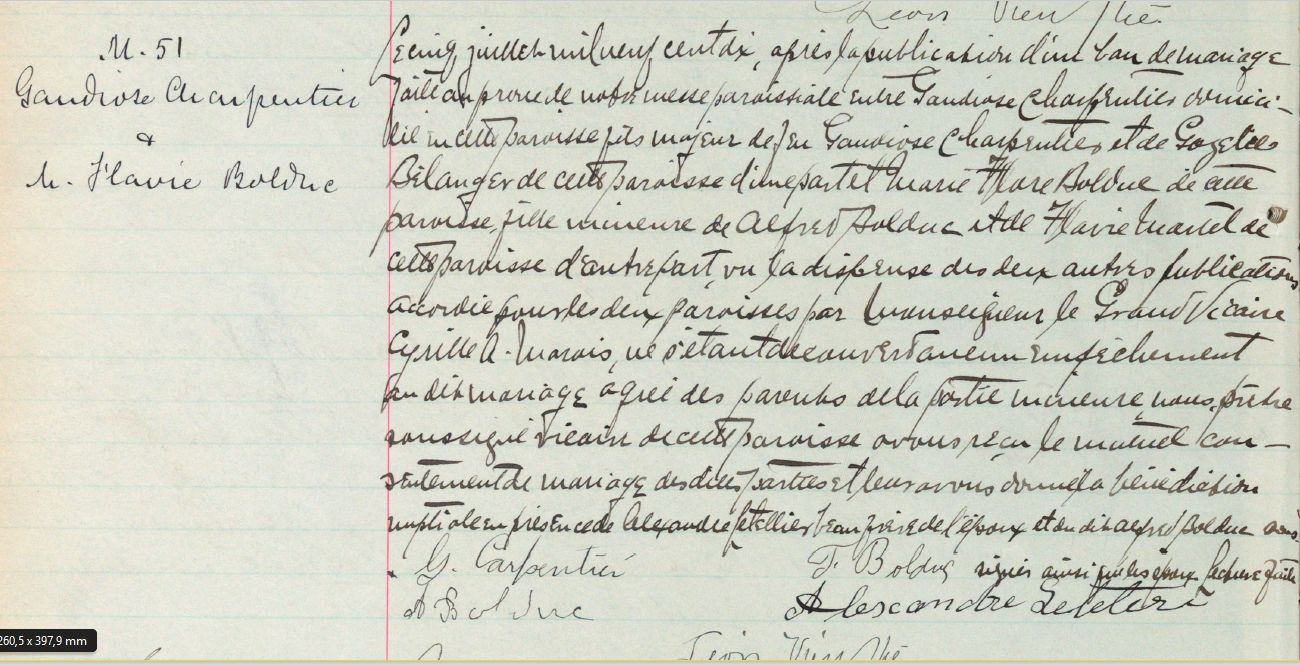 Léon Vien Ptre.
M. 51
Gaudiose Charpentier
&
M. Flavie Bolduc
Le cinq juillet mil neuf cent dix, après la publication d'un ban de mariage
faite au prone de notre messe paroissiale entre Gaudiose Charpentier domici-
lié en cette paroisse fils majeur de feu Gaudiose Charpentier et de
Bélanger de cette paroisse d'une part et Marie Bolduc de cette
paroisse, fille mineure de Alfred Bolduc et de Flavie Martel de
cette paroisse d'autre part, vu la dispense des deux autres publications
accordée pour les deux paroisses par Monseigneur le Grand Vicaire
Cyrille A. Marois, ne s'étant découvert aucun empêchement
au dit mariage agréé des parents de la partie mineure, nous, prêtre
soussigné vicaire de cette paroisse avons reçu le mutuel con-
sentement de mariage des dites parties et leur avons donné la bénédiction
nuptiale en présence de Alexandre beau frère de l'époux et du dit Alfred Bolduc
G. Carpentier F. Bolduc signés ainsi que les époux lecture faite
A Bolduc Alexandre
Léon Vien Ptre
260,5 x 397,9 mm